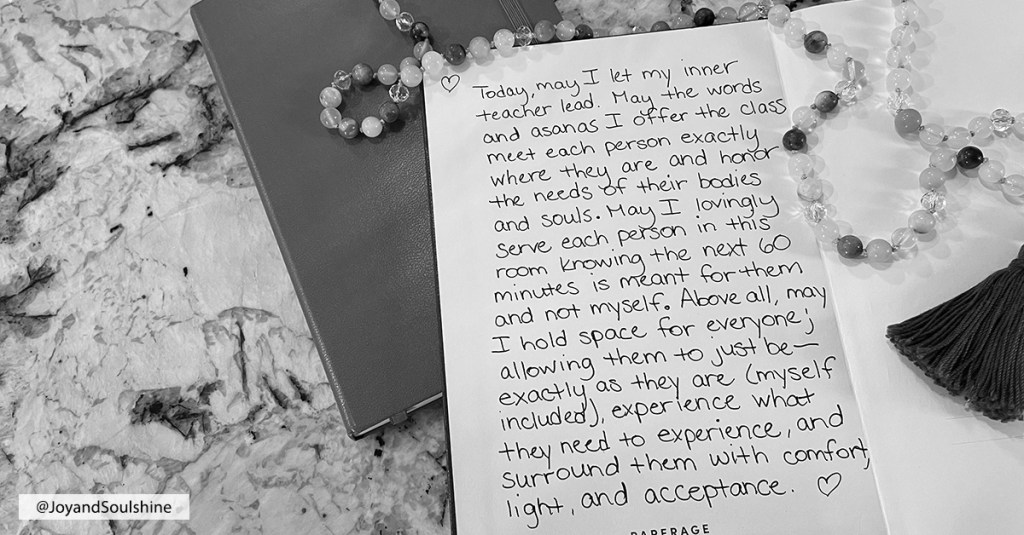 ♡ Today, may I let my inner
teacher lead. May the words
and asanas I offer the class
meet each person exactly
where they are and honor
the needs of their bodies
and souls. May I lovingly
serve each person in this
room knowing the next 60
minutes is meant for them
and not myself. Above all, may
I hold space for everyone;
allowing them to just be—
exactly as they are (myself
included), experience what
they need to experience, and
surround them with comfort,
light, and acceptance. ♡
PAPERAGE
@JoyandSoulshine